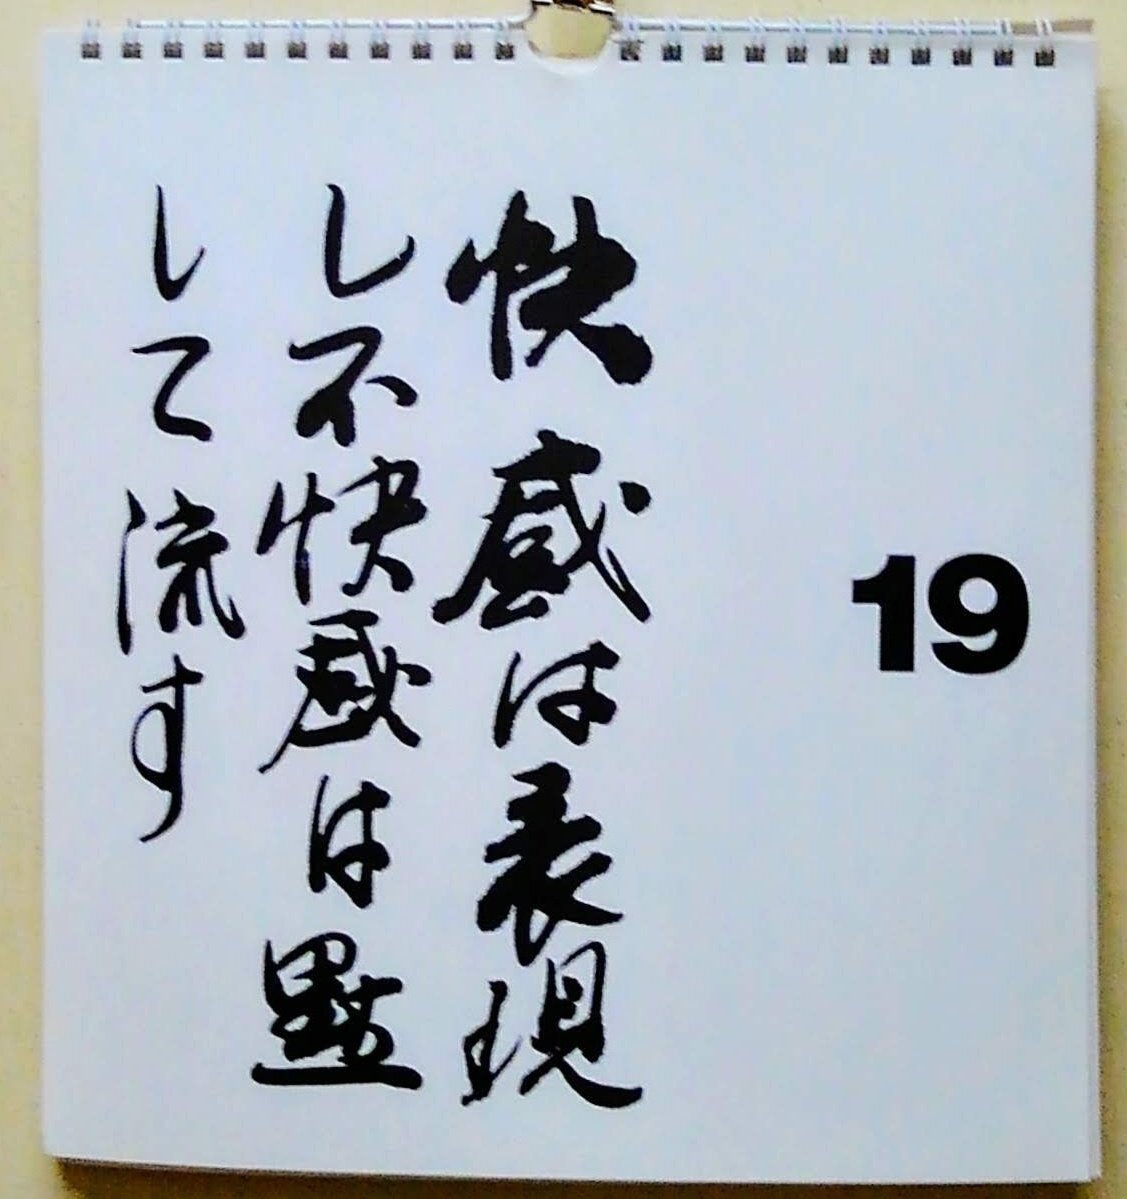 19
快感は表現
し不快感は黙
して流す